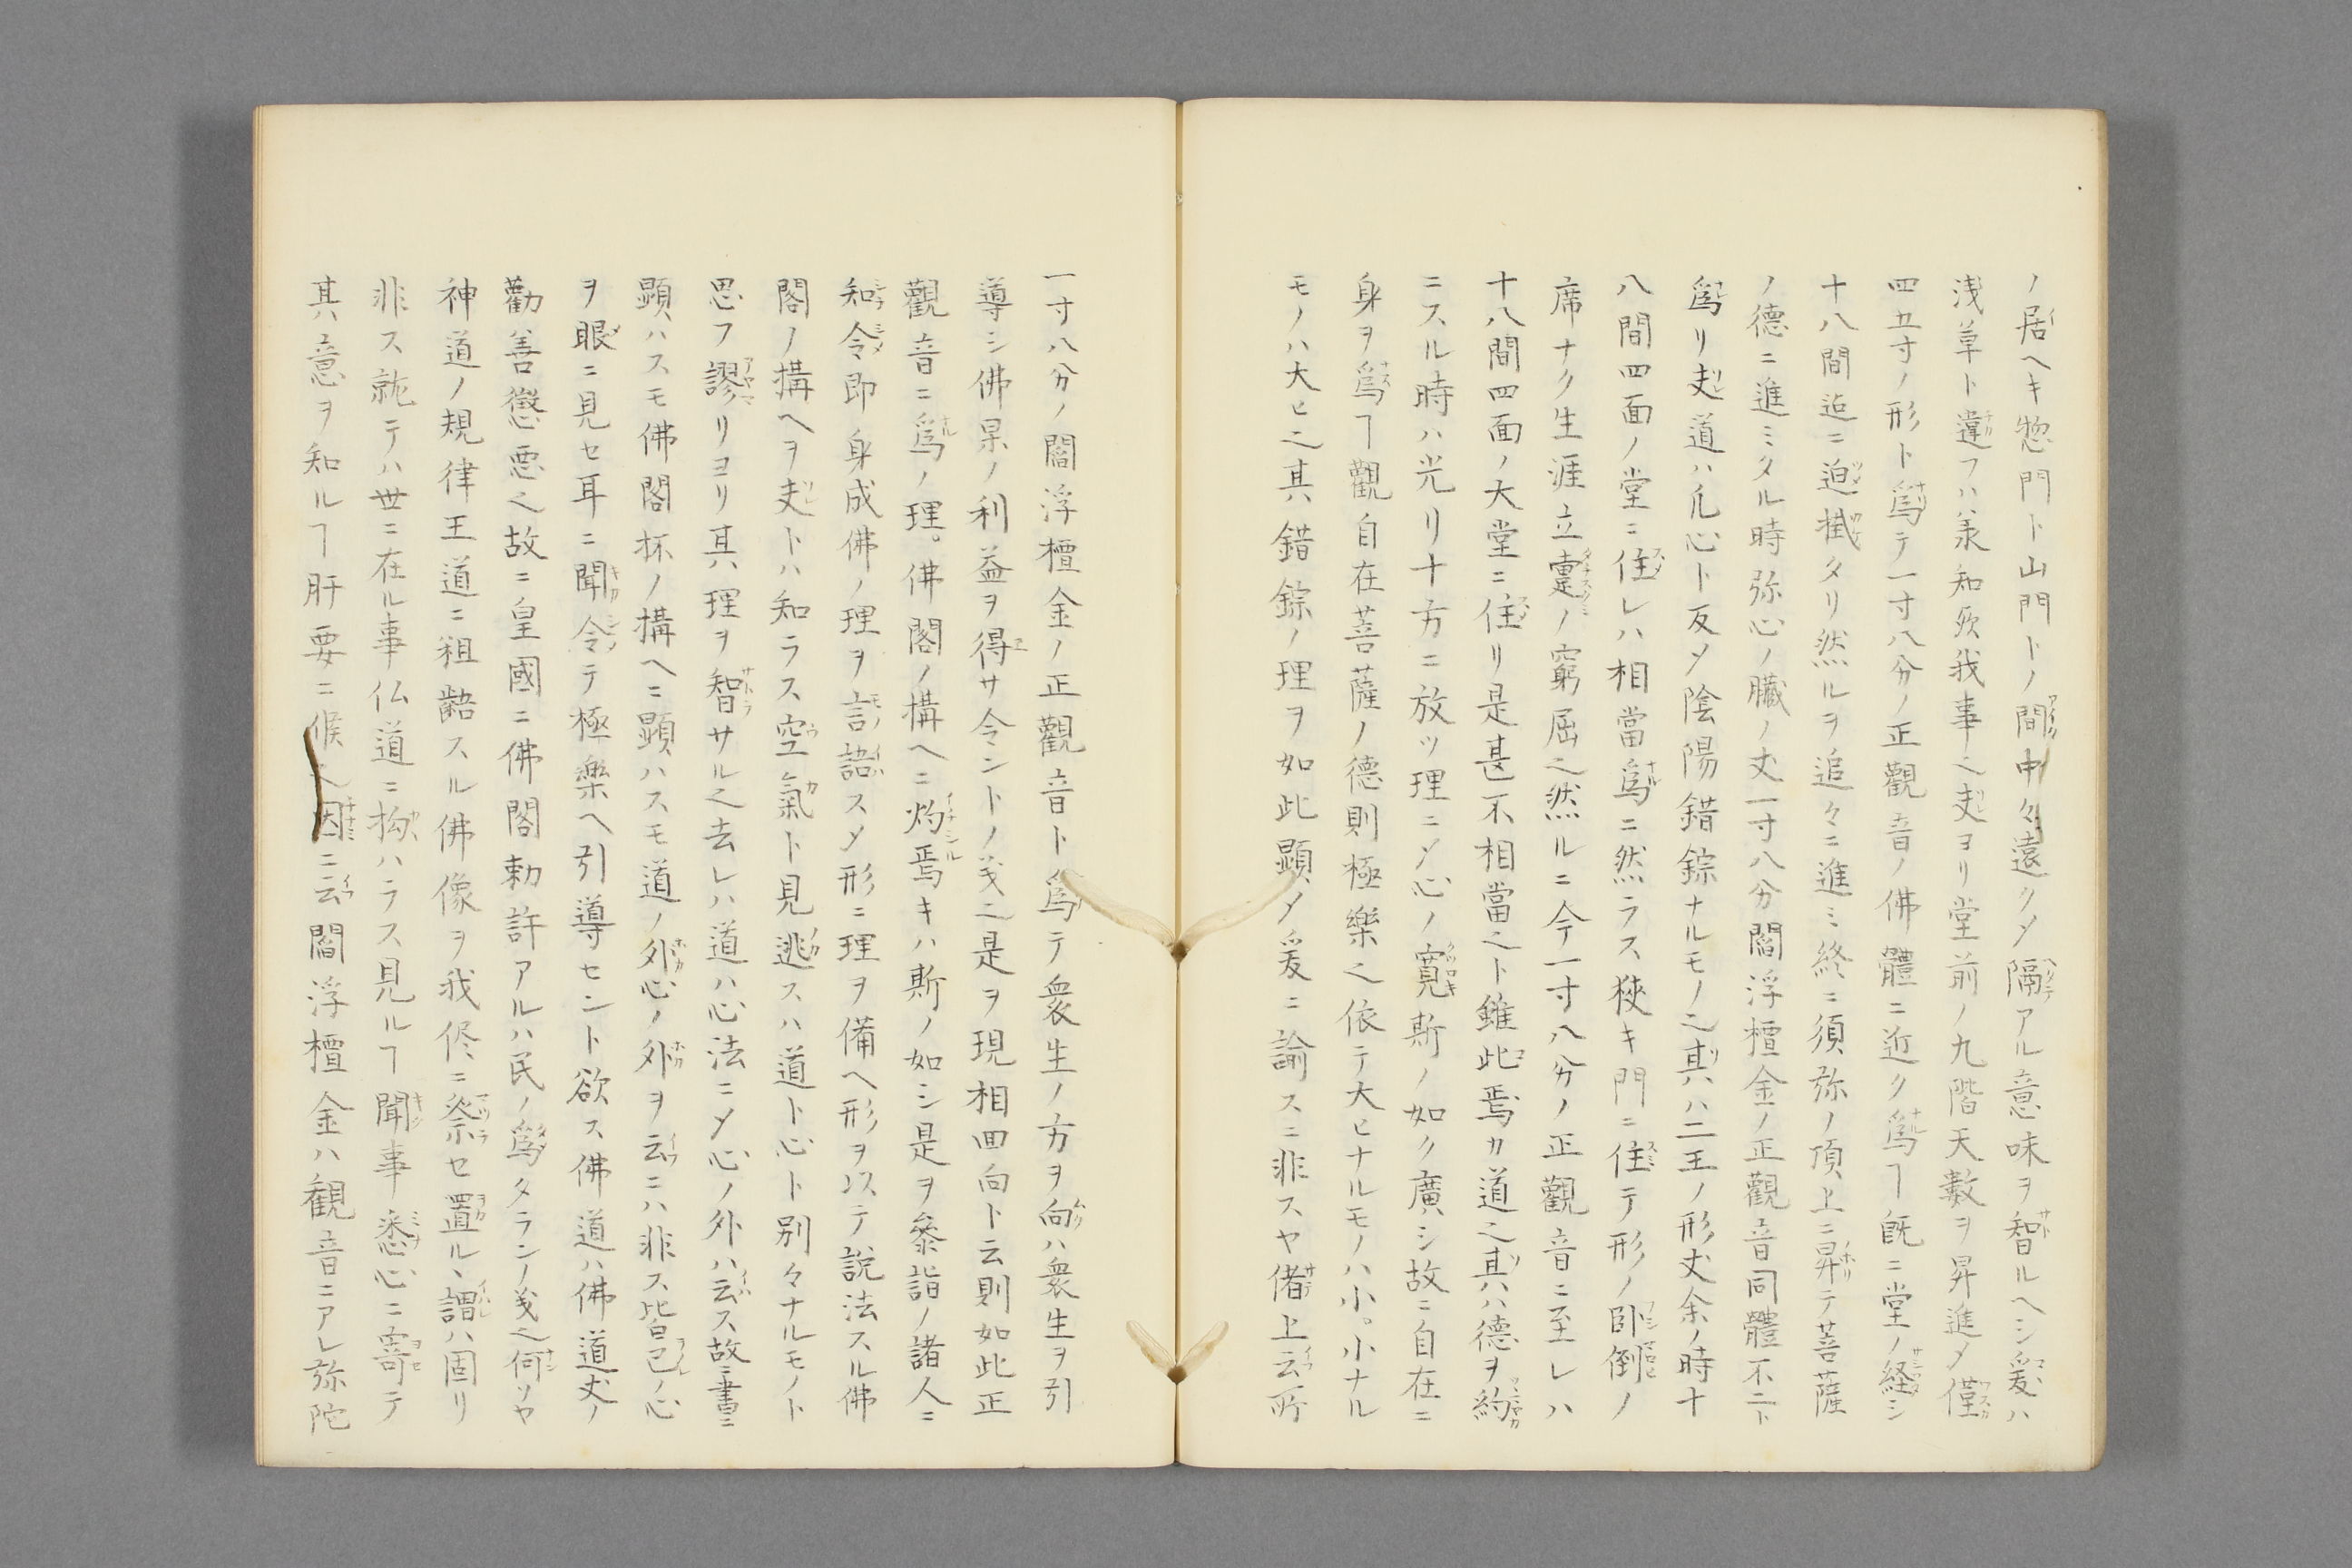 ノ居ヘキ惣門ト山門トノ間中々遠クメ隔アル意味ヲ智ルヘシ爰ハ
浅草ト違フハ羕知欤我事之夫ヨリ堂前ノ九階天數ヲ昇進メ僅
四五寸ノ形ト爲テ一寸八分ノ正觀音ノ佛體ニ近ク爲ヿ既ニ堂ノ経シ
十八間迠ニ迫掛タリ然ルヲ追々ニ進ミ終ニ須弥ノ頂上ニ昇テ菩薩
ノ德ニ進ミタル時弥心ノ臓ノ丈一寸八分閻浮檀金ノ正觀音同體不二ト
爲リ夫道ハ凡心ト反メ陰陽錯綜ナルモノ之其ハ二王ノ形丈余ノ時十
八間四面ノ堂ニ住レハ相當爲ニ然ラス狹キ門ニ住テ形ノ卧倒ノ
席ナク生涯立ノ窮屈之然ルニ今一寸八分ノ正觀音ニ至レハ
十八間四面ノ大堂ニ住リ是甚不相當之ト雖此焉カ道之其ハ德ヲ約
ニスル時ハ光リ十方ニ放ツ理ニメ心ノ寛斯ノ如ク廣シ故ニ自在ニ
身ヲ爲ヿ觀自在菩薩ノ德則極樂之依テ大ヒナルモノハ小。小ナル
モノハ大ヒ之其錯綜ノ理ヲ如此顕メ爰ニ諭スニ非スヤ偖上云所
一寸八分ノ閻浮檀金ノ正觀音ト爲テ衆生ノ方ヲ向ハ衆生ヲ引
導シ佛果ノ利益ヲ得サ令ントノ義之是ヲ現相回向ト云則如此正
觀音ニ爲ノ理。佛閣ノ構ヘニ灼焉キハ斯ノ如シ是ヲ參詣ノ諸人ニ
知令即身成佛ノ理ヲ言語スメ形ニ理ヲ備ヘ形ヲ以テ說法スル佛
閣ノ構ヘヲ夫トハ知ラス空氣ト見逃スハ道ト心ト別々ナルモノト
思フ謬リヨリ其理ヲ智サル之去レハ道ハ心法ニメ心ノ外ハ云ス故ニ書ニ
顕ハスモ佛閣抔ノ構ヘニ顕ハスモ道ノ外心ノ外ヲ云ニハ非ス皆己ノ心
ヲ眼ニ見セ耳ニ聞令テ極樂ヘ引導セント欲ス佛道ハ佛道丈ノ
勸善懲悪之故ニ皇國ニ佛閣勅許アルハ民ノ爲タランノ義之何ソヤ
神道ノ規律王道ニ粗齬スル佛像ヲ我侭ニ祭セ置ル、謂ハ固リ
非ス就テハ世ニ在ル事仏道ニ拘ハラス見ルヿ聞事悉心ニ寄テ
其意ヲ知ルヿ肝要ニ候之因ニ云閻浮檀金ハ観音ニアレ弥陀